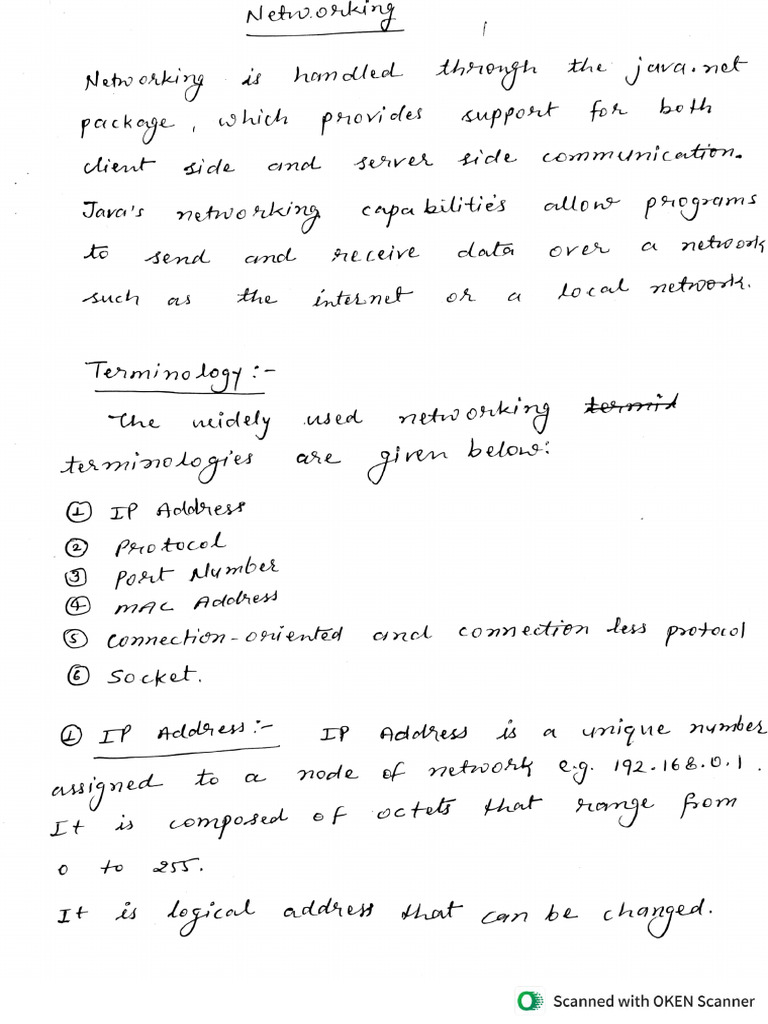 Networking
Networking is handled through the java.net
package, which provides support for both
client side and server side communication.
Java's networking capabilities allow programs
to send and receive data over a network
such as the internet or a local network.
Terminology :-
The widely used networking termid
terminologies are given below:
① IP Address
② Protocol
③ Port Number
④ MAC Address
⑤ Connection-oriented and connection less protocol
⑥ Socket.
① IP Address :- IP Address is a unique number
assigned to a node of network e.g. 192.168.0.1.
It is composed of octets that range from
0 to 255.
It is logical address that can be changed.
Scanned with OKEN Scanner